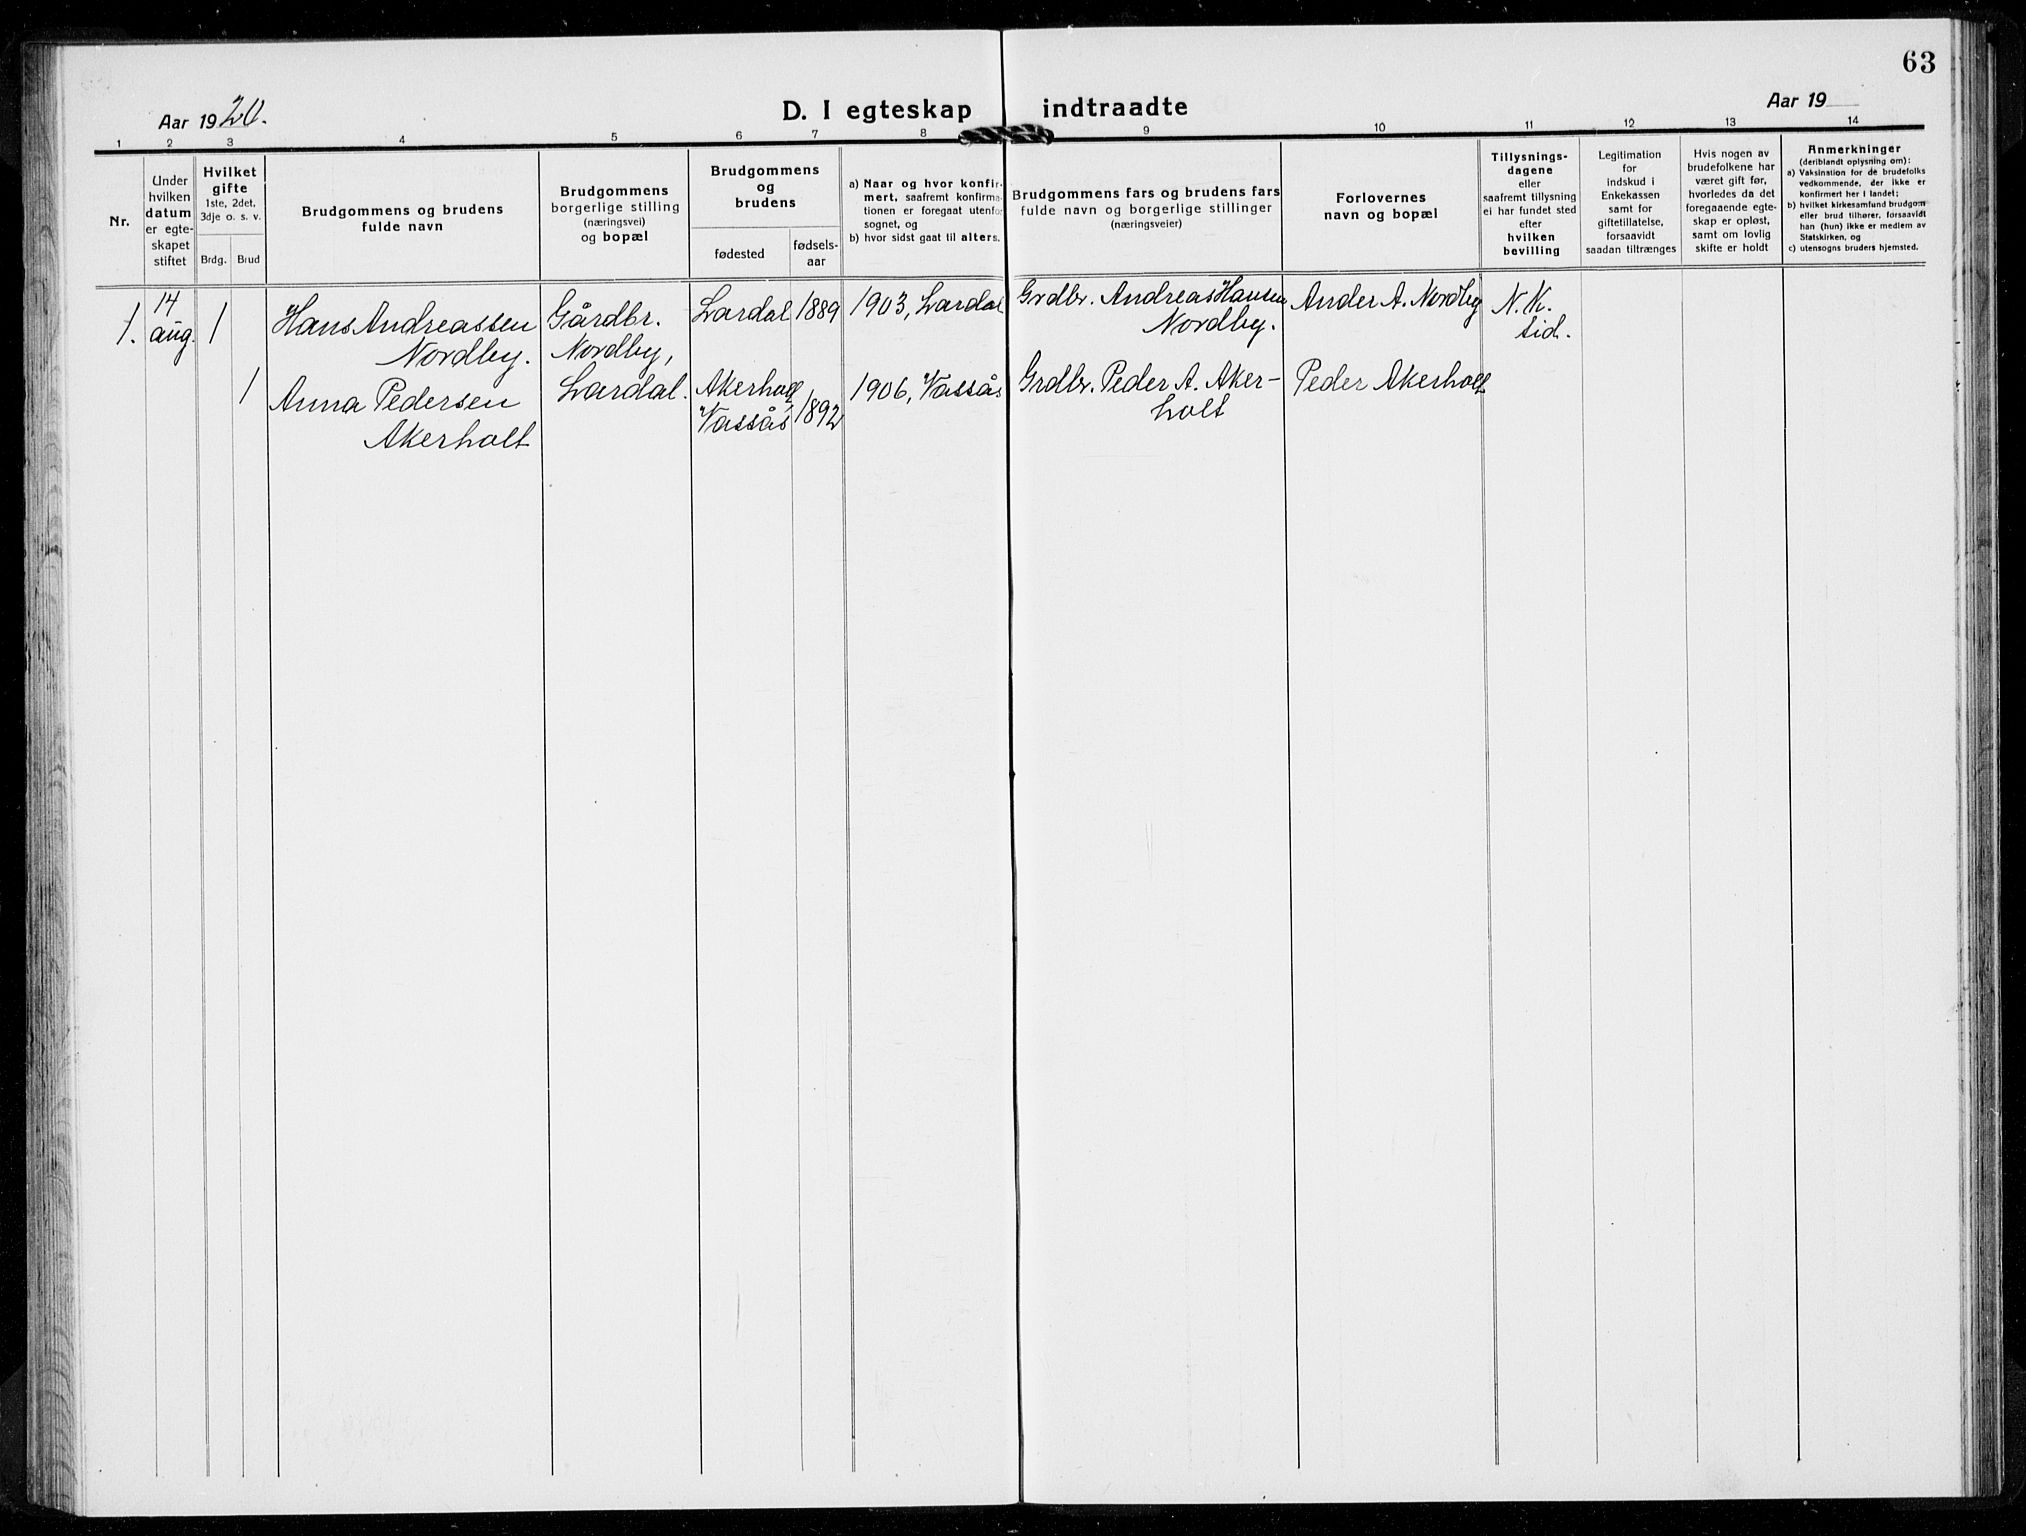 63
Aar 1920.
D. I egteskap indtraadte
Aar 19
1 2 3 4 5 6 7 8 9 10 11 12 13 14
Nr.
Under
hvilken
datum
er egte-
skapet
stiftet
Hvilket
gifte
1ste, 2det,
3dje o. s. v.
Brdg. Brud
Brudgommens og brudens
fulde navn
Brudgommens
borgerlige stilling
(næringsvei)
og bopæl
Brudgommens
og
brudens
fødested
fødsels-
aar
a) Naar og hvor konfir-
mert, saafremt konfirma-
tionen er foregaat utenfor
sognet, og
b) hvor sidst gaat til alters.
Brudgommens fars og brudens fars
fulde navn og borgerlige stillinger
(næringsveier)
Forlovernes
navn og bopæl
Tillysnings-
dagene
eller
saafremt tillysning
ei har fundet sted
efter
hvilken
bevilling
Legitimation
for
indskud i
Enkekassen
samt for
giftetillatelse,
forsaavidt
saadan tiltrænges
Hvis nogen av
brudefolkene har
været gift før,
hvorledes da det
foregaaende egte-
skap er opløst,
samt om lovlig
skifte er holdt
Anmerkninger
(deriblandt oplysning om):
a) Vaksination for de brudefolks
vedkommende, der ikke er
konfirmert her i landet;
b) hvilket kirkesamfund brudgom
eller brud tilhører, forsaavidt
han (hun) ikke er medlem av
Statskirken, og
c) utensogns bruders hjemsted.
1.
14
aug.
1
Hans Andreassen
Nordby.
Gårdbr.
Nordby,
Lardal.
Lardal
1889
1903, Lardal
Grdbr. Andreas Hansen
Nordby.
Ander A. Nordby
N. K.
tid.
1
Anna Pedersen
Akerholt
Akerholt
Vassås
1892
1906, Vassås
Grdbr. Peder A. Aker-
holt
Peder Akerholt